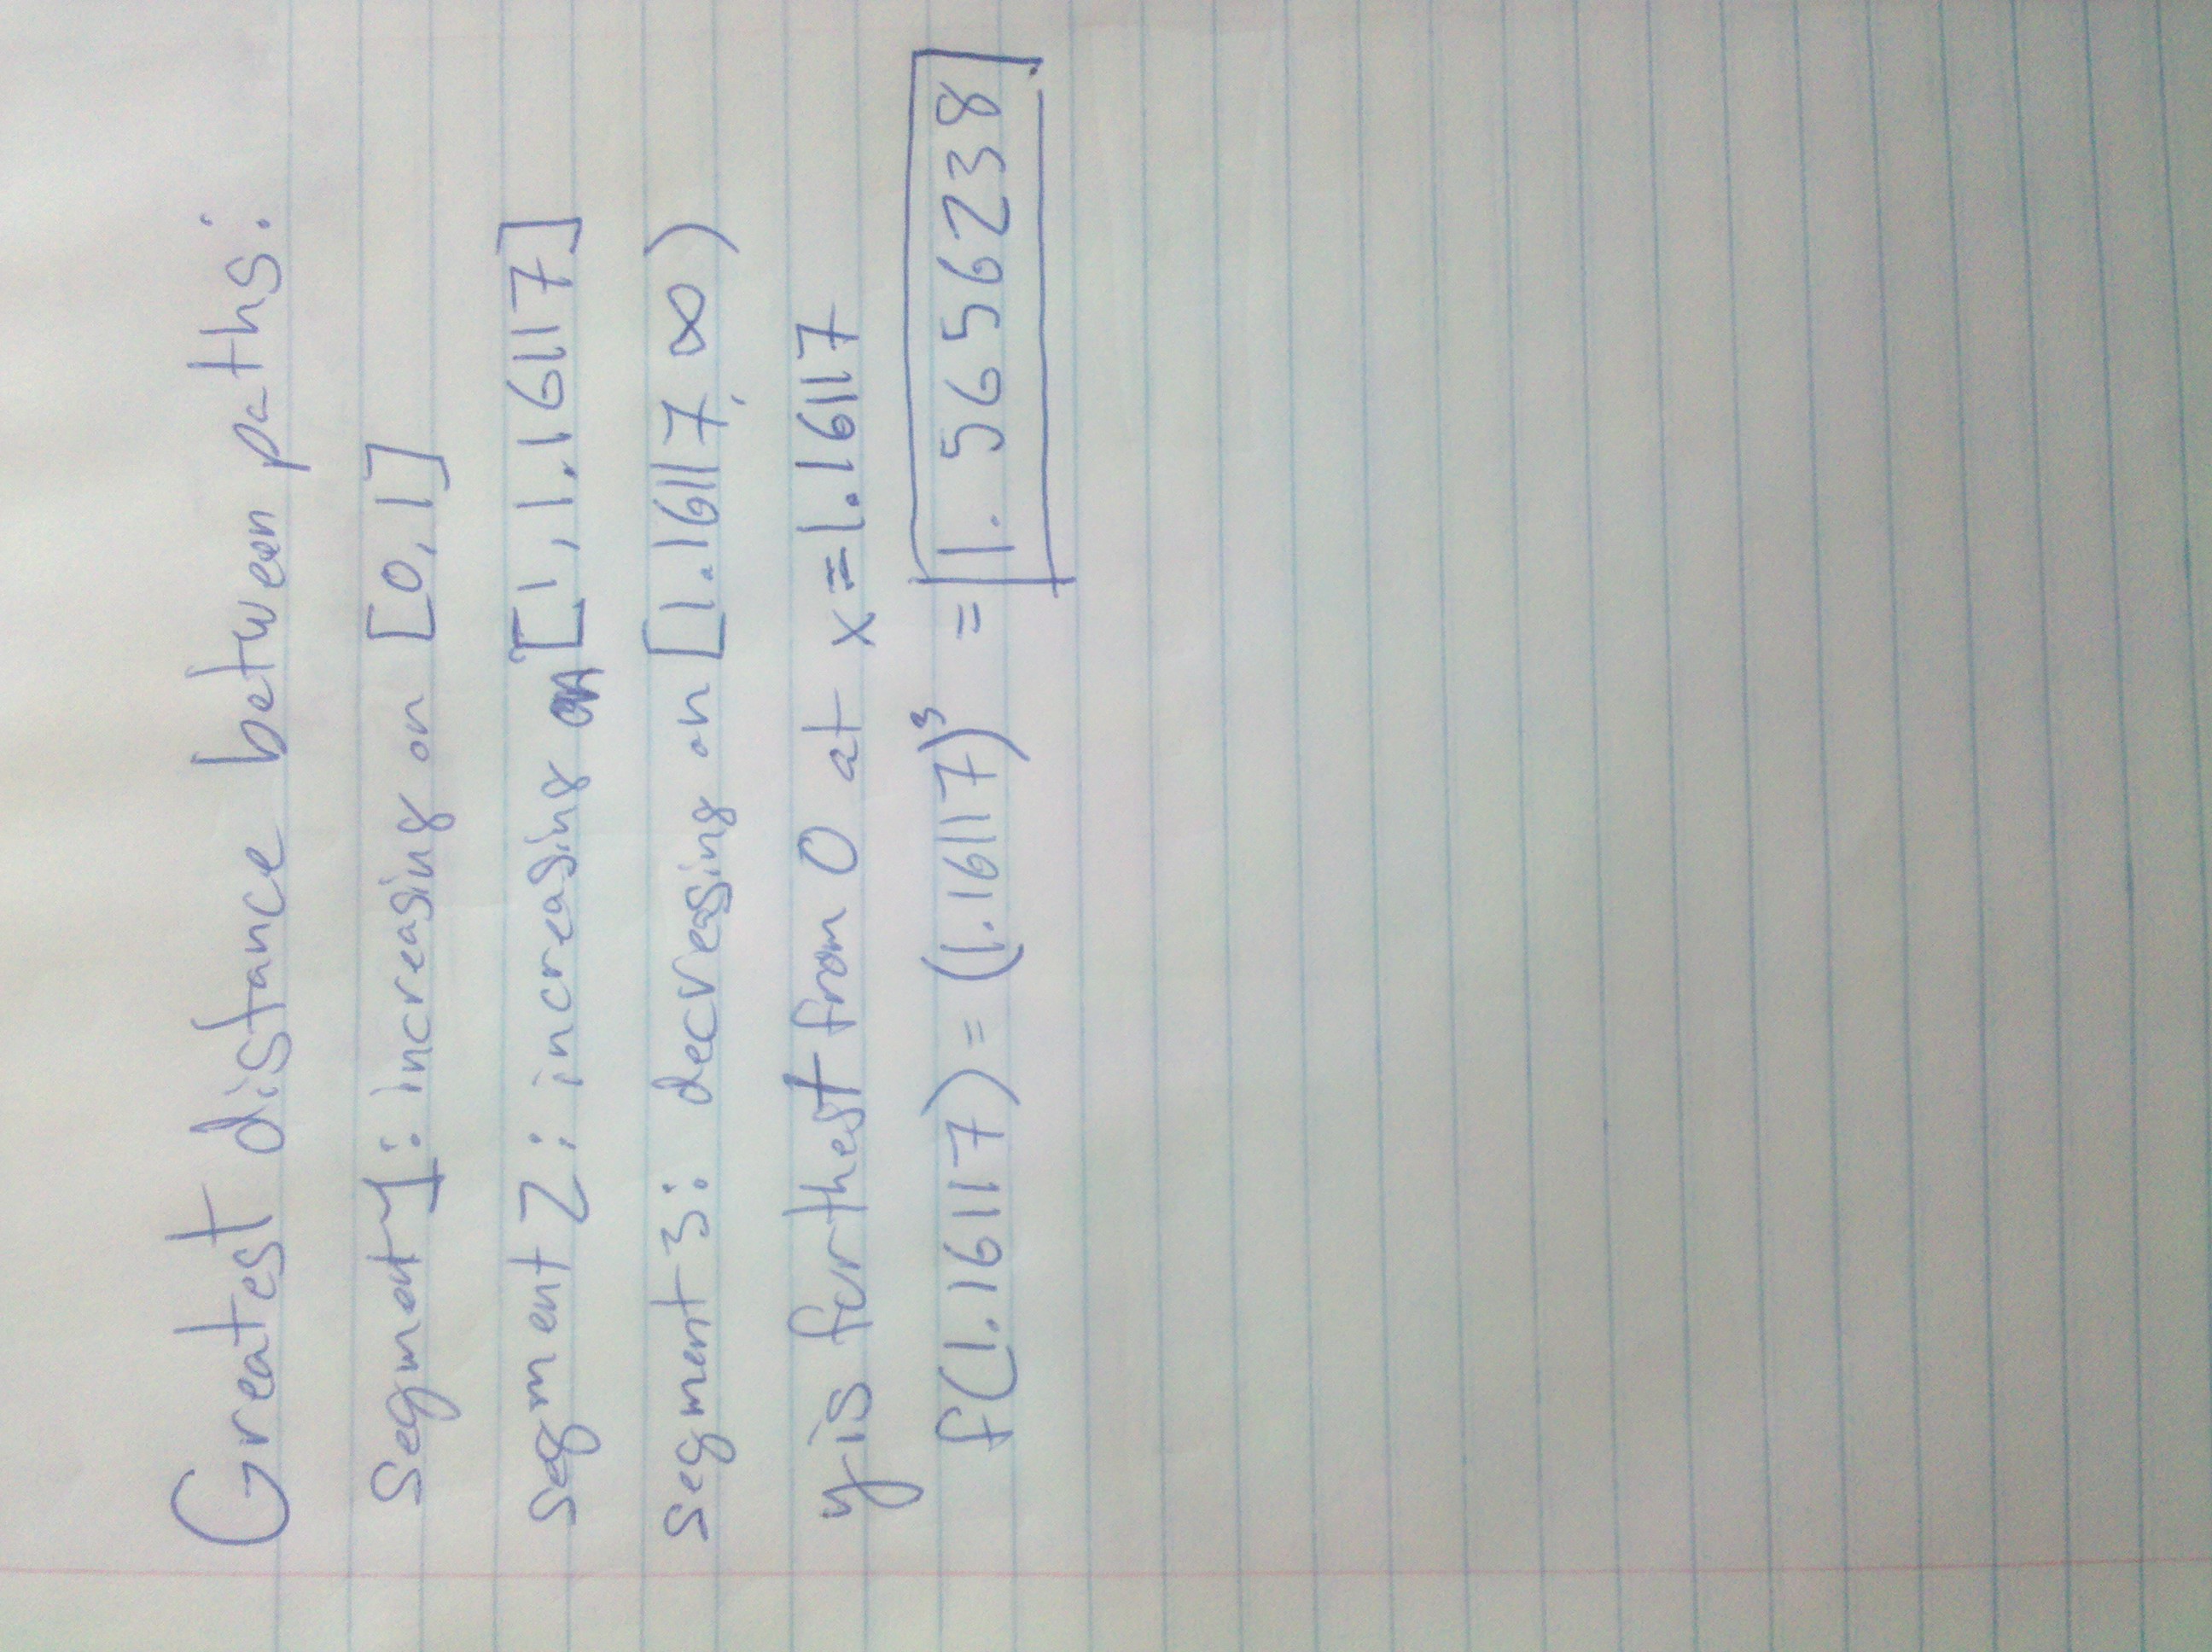 Greatest distance between paths:
Segment 1: increasing on [0,1]
segment 2: increasing on [1, 1.16117]
segment 3: decreasing on [1.16117, ∞)
y is furthest from 0 at x=1.16117
f(1.16117) = (1.16117)³ = 1.5656238